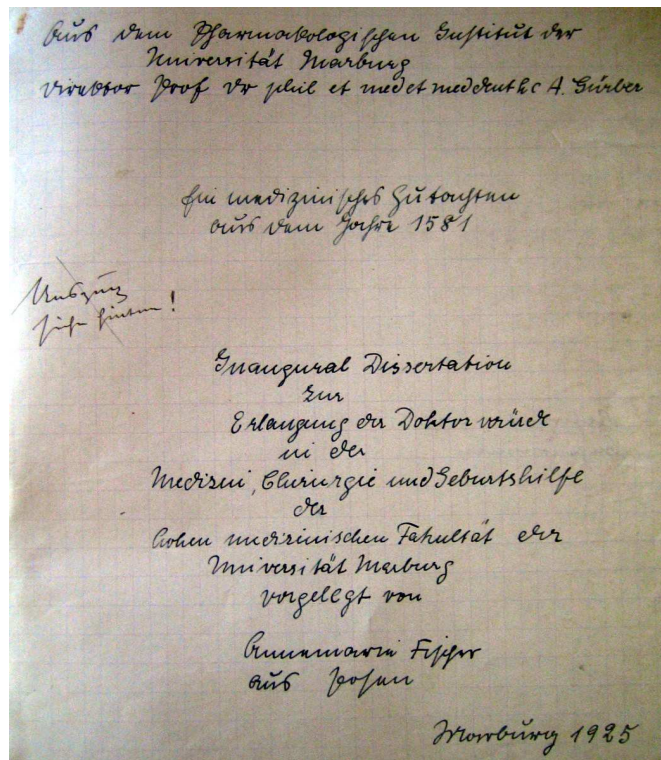 Aus dem Pharmakologischen Institut der
Universität Marburg
Direktor Prof Dr phil et med et med dent h c A. Gürber
Ein medizinisches Gutachten
aus dem Jahre 1581
Auszug
siehe hinten!
Inaugural Dissertation
zur
Erlangung der Doktorwürde
in der
Medizin, Chirurgie und Geburtshilfe
der
hohen medizinischen Fakultät der
Universität Marburg
vorgelegt von
Annemarie Fischer
aus Posen
Marburg 1925